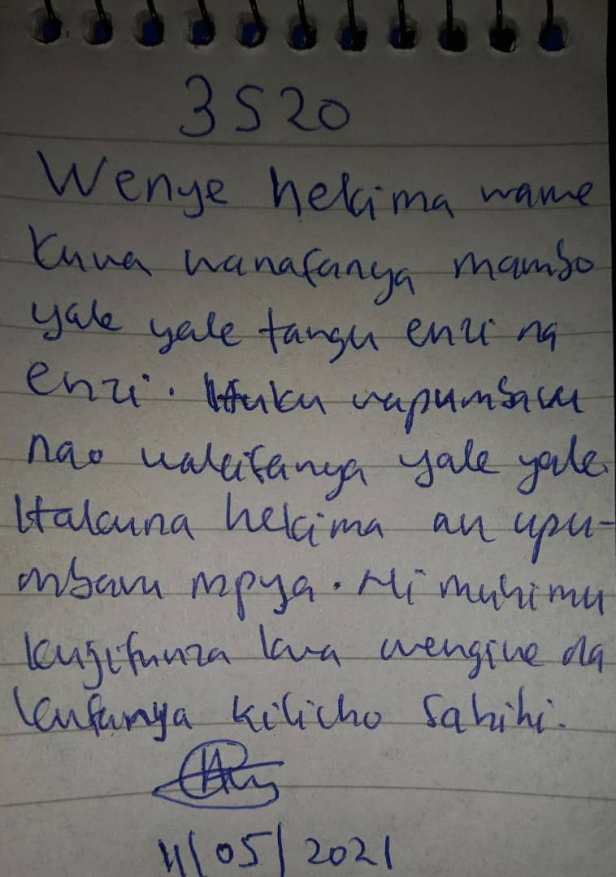 3520
Wenye hekima wame
kuwa wanafanya mambo
yale yale tangu enzi na
enzi. Huku wapumbavu
nao wakifanya yale yale.
Hakuna hekima au upu-
mbavu mpya. Ni muhimu
kujifunza kwa wengine na
kufanya kilicho sahihi.
11/05/2021